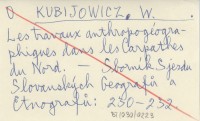 O KUBIJOWICZ, W.
Les travaux anthropogéogra-
phiques dans les Carpathes
du Nord. — Sborník Sjezdu
Slovanských Geografů a
Etnografů: 230-232